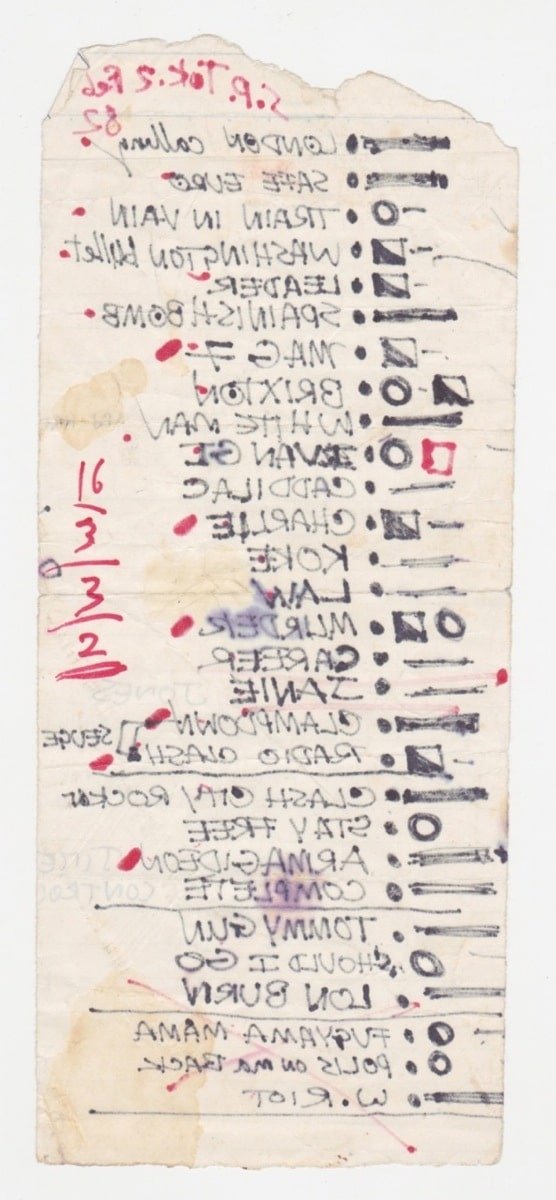 S.P. Tok. 2 Feb
82
LONDON calling
SAFE EURO
TRAIN IN VAIN
WASHINGTON bullet
LEADER
SPAINISH BOMB
MAG 7
BRIXTON
WHITE MAN
IVAN GI
CADDILAC
CHARLIE
KOKE
LAW
MURDER
CAREER
JANIE
CLAMPDOWN
SEUGE
RADIO CLASH
CLASH CITY ROCKER
STAY FREE
ARMAGIDEON
COMPLETE
TOMMY GUN
SHOULD I GO
LON BURN
FUGYAMA MAMA
POLIS on ma BACK.
W. RIOT
16
3
3
2
JONES